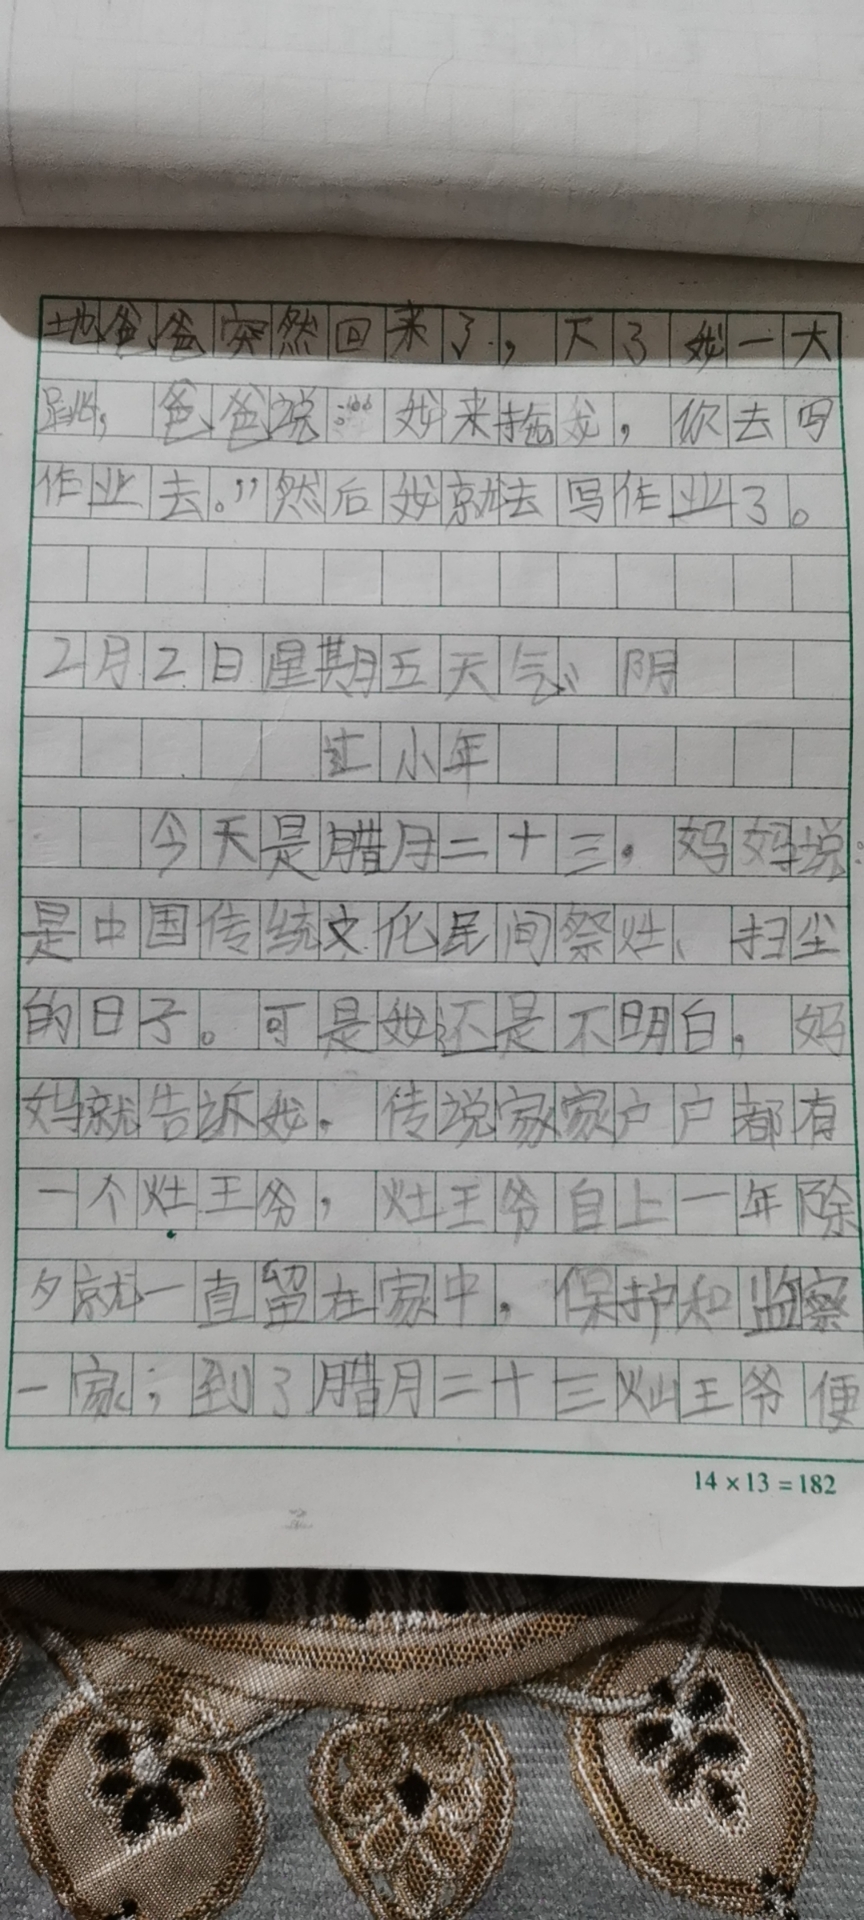 地爸爸突然回来了，下了我一大
跳，爸爸说：“我来拖地，你去写
作业去。”然后我就去写作业了。
2月2日星期五天气：阴
过小年
今天是腊月二十三，妈妈说：
是中国传统文化民间祭灶、扫尘
的日子。可是我还是不明白，妈
妈就告诉我，传说家家户户都有
一个灶王爷，灶王爷自上一年除
夕就一直留在家中，保护和监察
一家；到了腊月二十三灶王爷便
14×13=182